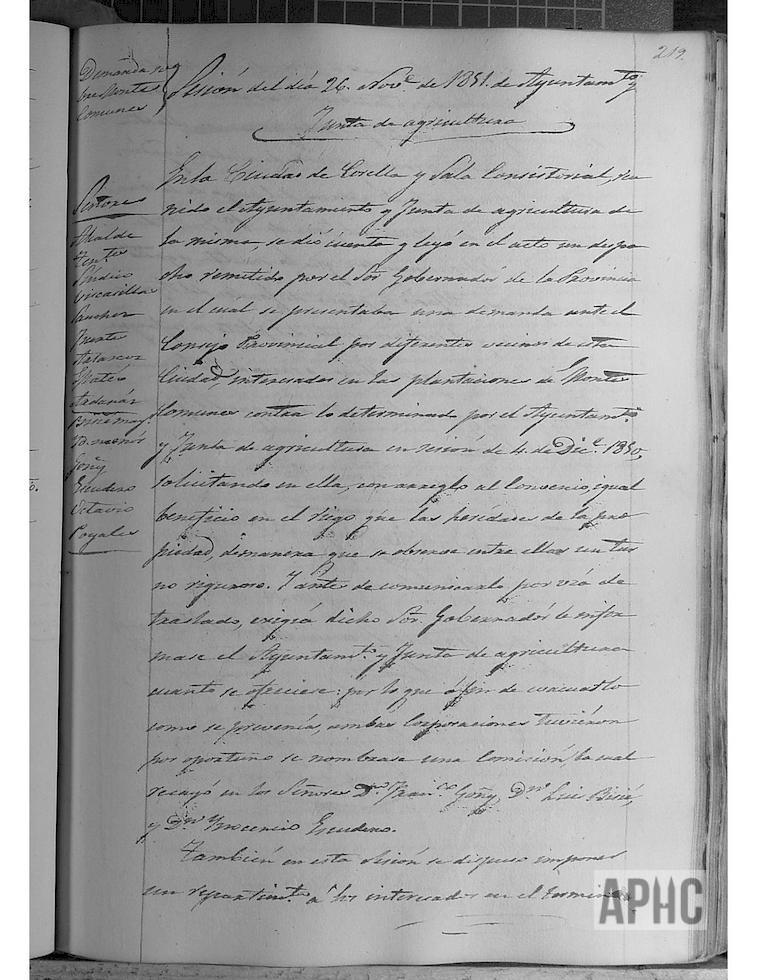 219.
Demanda so
bre Monte
Comunes
Sesión del día 26. Nov.e de 1851. de Ayuntam.to y
Junta de agricultura
Señores
Alcalde
Ten.te
Síndico
Vircarilla
Sanchez
Puente
Matéo
Goñy
Escudero
Octavio
Poyales
En la Ciudad de Corella y Sala Consistorial, reu
nido el Ayuntamiento y Junta de agricultura de
la misma, se dió cuenta y leyó en el acto un despa
cho remitido por el Sor. Gobernador de la Provincia
en el cuál se presentaba una demanda ante el
Consejo Provincial por diferentes vecinos de esta
Ciudad, interesados en las plantaciones de Montes
Comunes contra lo determinado por el Ayuntam.to
y Junta de agricultura en sesión de 4. de Dic.e 1850,
solicitando en ella, con arreglo al Convenio, igual
beneficio en el riego que las heredades de la pro
piedad, de manera que se observe entre ellas un tur
no riguroso. Y antes de comunicarla por via de
traslado, exigía dicho Sor. Gobernador le infor
mase el Ayuntam.to y Junta de agricultura
cuanto se ofreciese: por lo que á fin de evacuarlo
como se prevenía, ambas Corporaciones tuvieron
por oportuno se nombrase una Comisión, la cual
recayó en los Señores D.n Fran.co Goñy, D.n Luis
y D.n Ynocencio Escudero.
También en esta Sesión se dispuso imponer
un repartim.to á los interesados en el termino
APHC